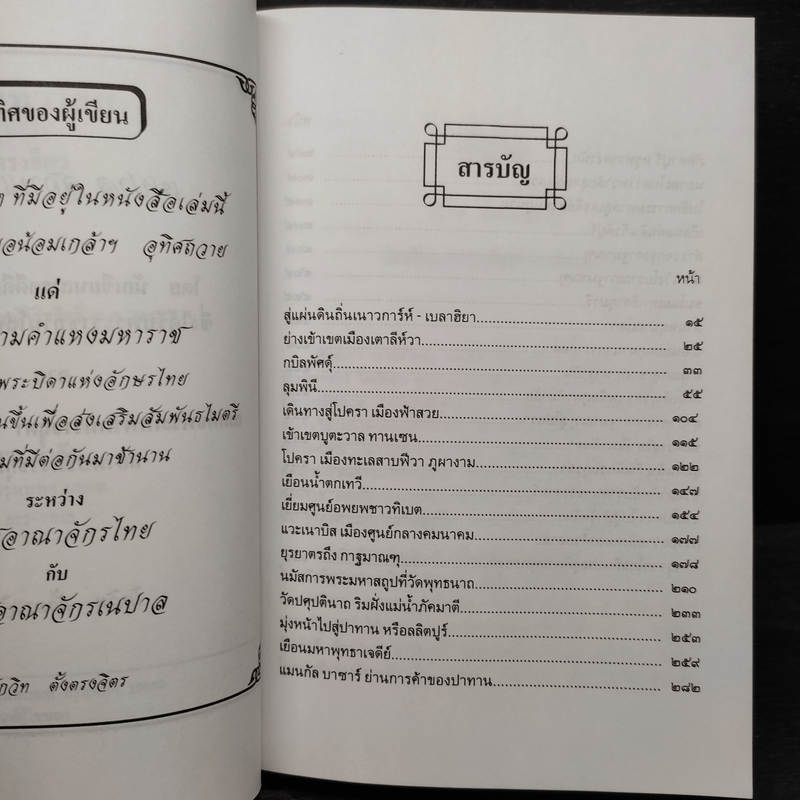 ทิศของผู้เขียน
ที่มีอยู่ในหนังสือเล่มนี้
อน้อมเกล้าฯ อุทิศถวาย
แด่
ามคำแหงมหาราช
พระบิดาแห่งอักษรไทย
นขึ้นเพื่อส่งเสริมสัมพันธไมตรี
มที่มีต่อกันมาช้านาน
ระหว่าง
อาณาจักรไทย
กับ
อาณาจักรเนปาล
กวิท ตั้งตรงจิตร
สารบัญ
หน้า
สู่แผ่นดินถิ่นเนาวการ์ห์ - เบลาฮิยา ๑๕
ย่างเข้าเขตเมืองเตาลีห์วา ๒๕
กบิลพัศดุ์ ๓๓
ลุมพินี ๕๕
เดินทางสู่โปครา เมืองฟ้าสวย ๑๐๔
เข้าเขตบูตะวาล ทานเซน ๑๑๕
โปครา เมืองทะเลสาบฟีวา ภูผางาม ๑๒๒
เยือนน้ำตกเทวี ๑๔๗
เยี่ยมศูนย์อพยพชาวทิเบต ๑๕๔
แวะเนาบิส เมืองศูนย์กลางคมนาคม ๑๗๗
ยุรยาตรถึง กาฐมาณฑุ ๑๗๘
นมัสการพระมหาสถูปที่วัดพุทธนาถ ๒๑๐
วัดปศุปตินาถ ริมฝั่งแม่น้ำภัคมาตี ๒๓๓
มุ่งหน้าไปสู่ปาทาน หรือลลิตปูร์ ๒๕๓
เยือนมหาพุทธาเจดีย์ ๒๕๙
แมนกัล บาซาร์ ย่านการค้าของปาทาน ๒๘๒